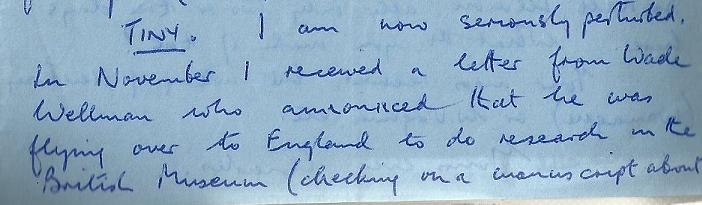 TINY. I am now seriously perturbed.
In November I received a letter from Wade
Wellman who announced that he was
flying over to England to do research in the
British Museum (checking on a manuscript about